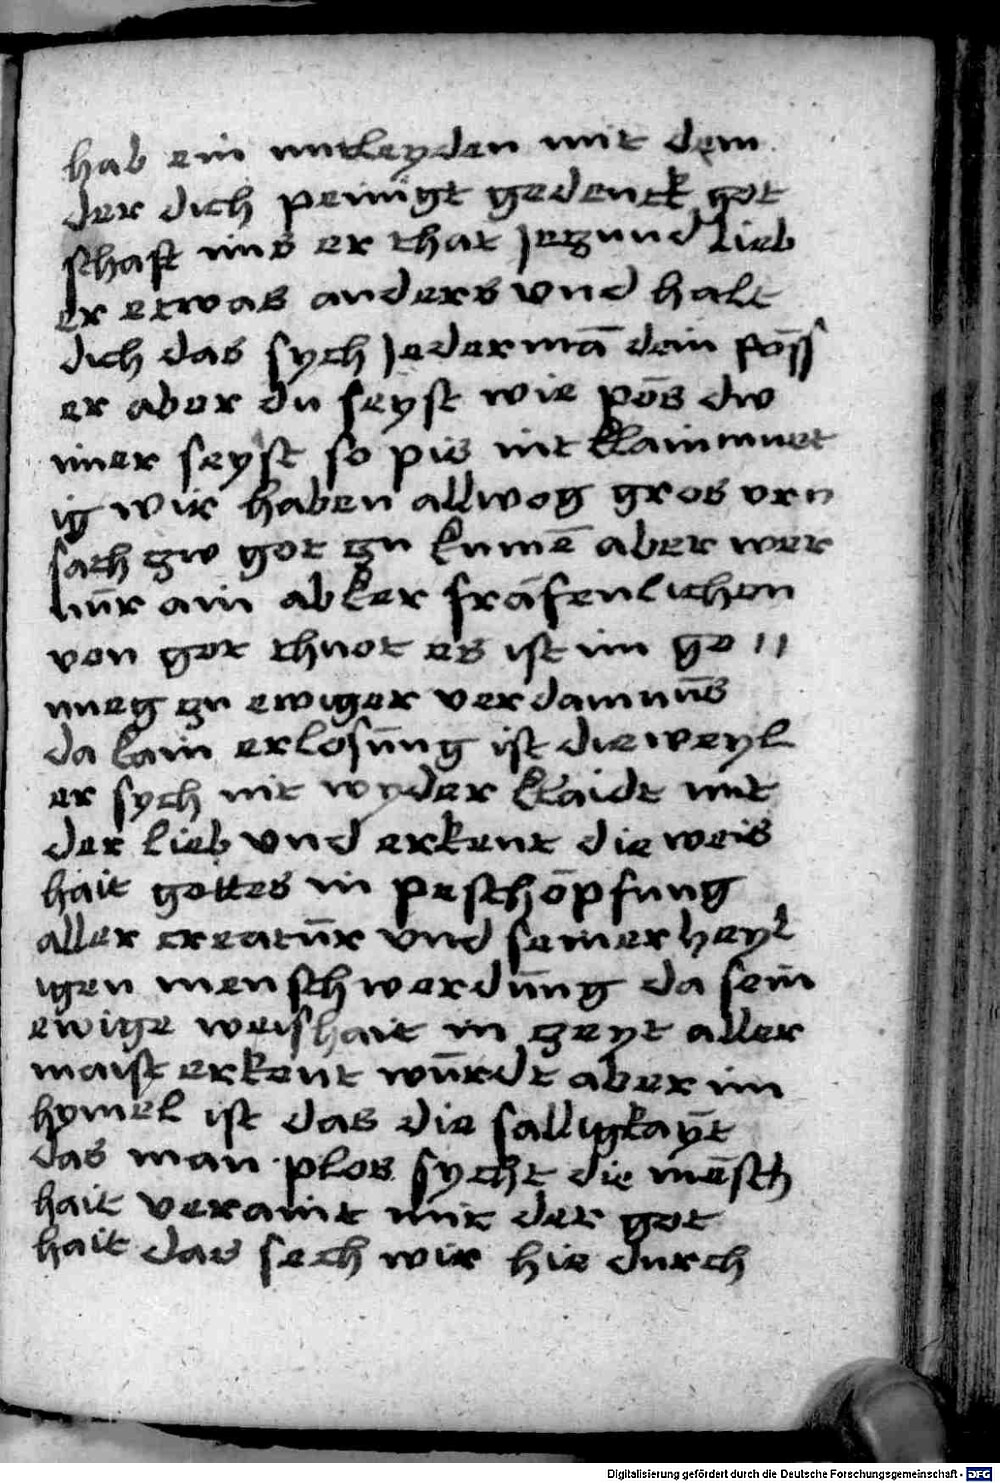 hab ein mitleyden mit dem
der dich peinigt gedenck got
schaft uns er that jezund lieb
er etwas anders vnd halt
dich das sych jedermā dein pöss
er aber du seyst wie pös dw
imer seyst so pis nit klainmuet
ig wir haben allweg gros vrn
sach zw got zu kumē aber wer
nūr ain abker fräfenlichen
von got thuot es ist im ge //
nueg zu ewiger verdamnūs
da kain erlosūng ist dieweyl
er sych nit wyder klaidt mit
der lieb vnd erkent die weis
hait gottes in peschöpfung
aller creatūr vnd seiner heyl
igen menschwerdūng da sein
ewige weishait in zeyt aller
maist erkent wūrdt aber im
hymel ist das die salligkaÿt
das man plos sycht die mēsch
hait veraint mit der got
hait das sech wir hie durch
Digitalisierung gefördert durch die Deutsche Forschungsgemeinschaft - DFG